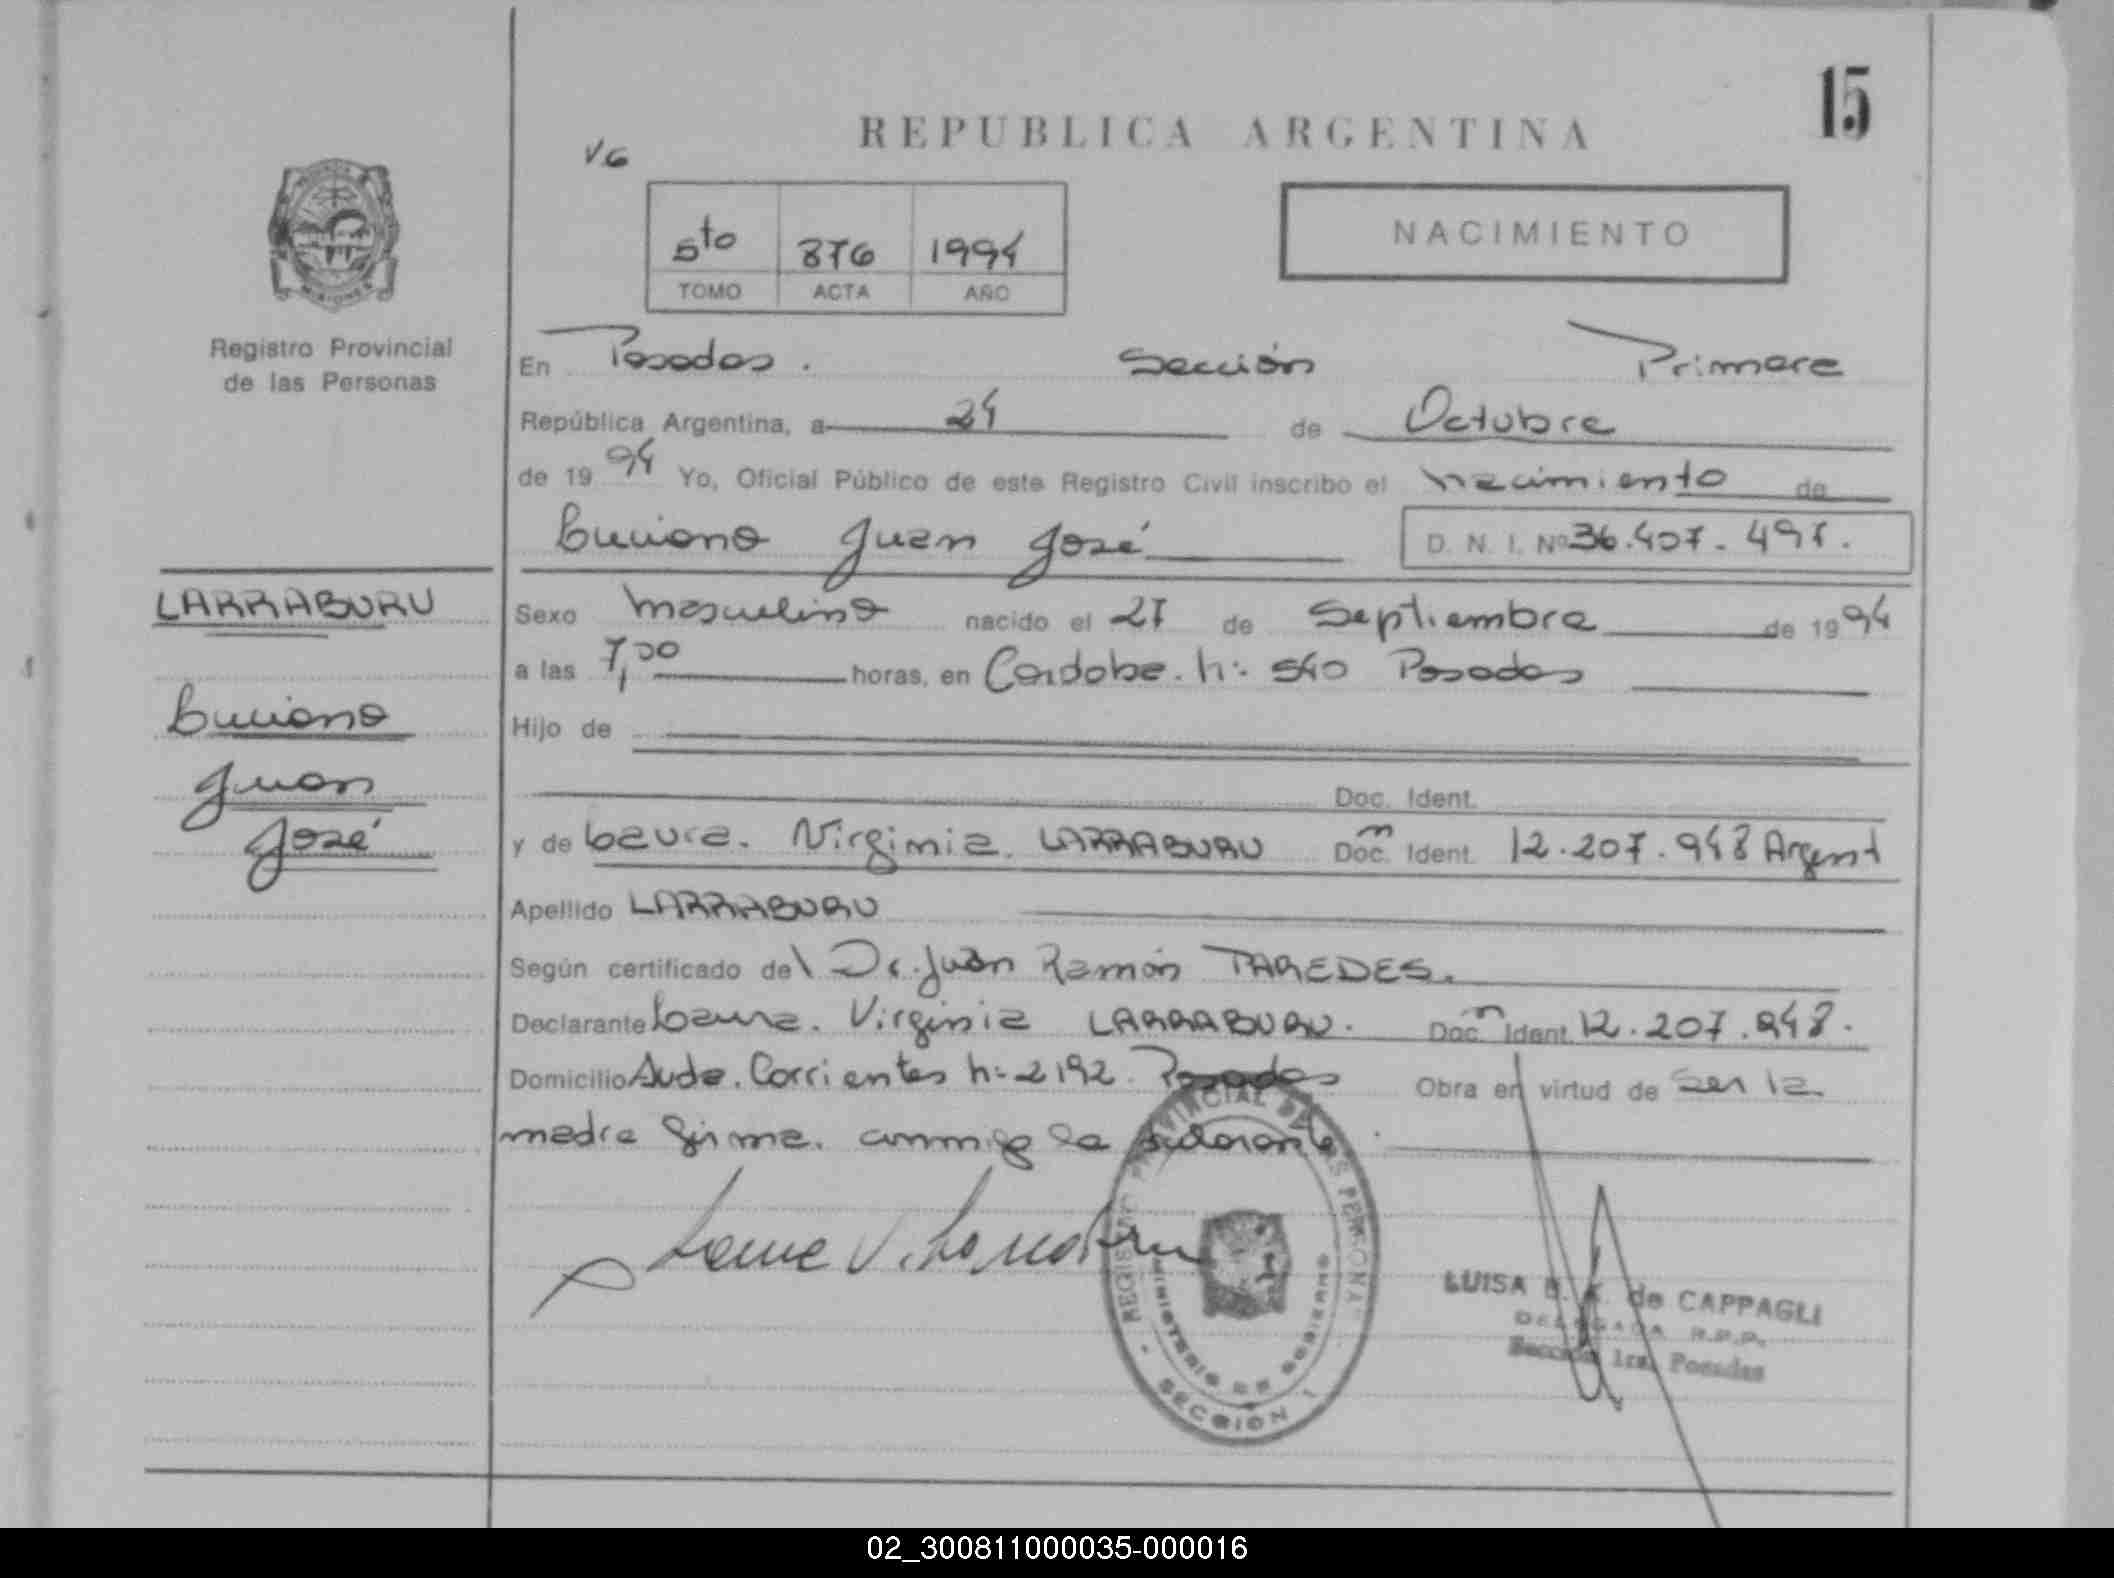 15
REPUBLICA ARGENTINA
V.G
5to 876 1994
TOMO ACTA AÑO
NACIMIENTO
MISIONES
Registro Provincial
de las Personas
En Posadas. Sección Primera
República Argentina, a 24 de Octubre
de 19 94 Yo, Oficial Público de este Registro Civil inscribo el nacimiento de
Luciano Juan José D. N. I. Nº 36.407.497.
LARRABURU
Luciano
Juan
José
Sexo masculino nacido el 27 de Septiembre de 19 94
a las 7,00 horas, en Cordoba. nº 540 Posadas
Hijo de
Doc. Ident.
y de Laura. Virginia. LARRABURU Doc. Ident. 12.207.948 Argent
Apellido LARRABURU
Según certificado del Dr. Juan Ramón PAREDES.
Declarante Laura. Virginia LARRABURU. Doc. Ident. 12.207.948.
Domicilio Avda. Corrientes nº 2192. Posadas Obra en virtud de ser la
madre firma. conmigo la
REGISTRO PROVINCIAL DE LAS PERSONAS
MINISTERIO DE GOBIERNO
SECCION 1
LUISA de CAPPAGLI
DELEGADA R.P.P.
Sección 1ra. Posadas
02_300811000035-000016